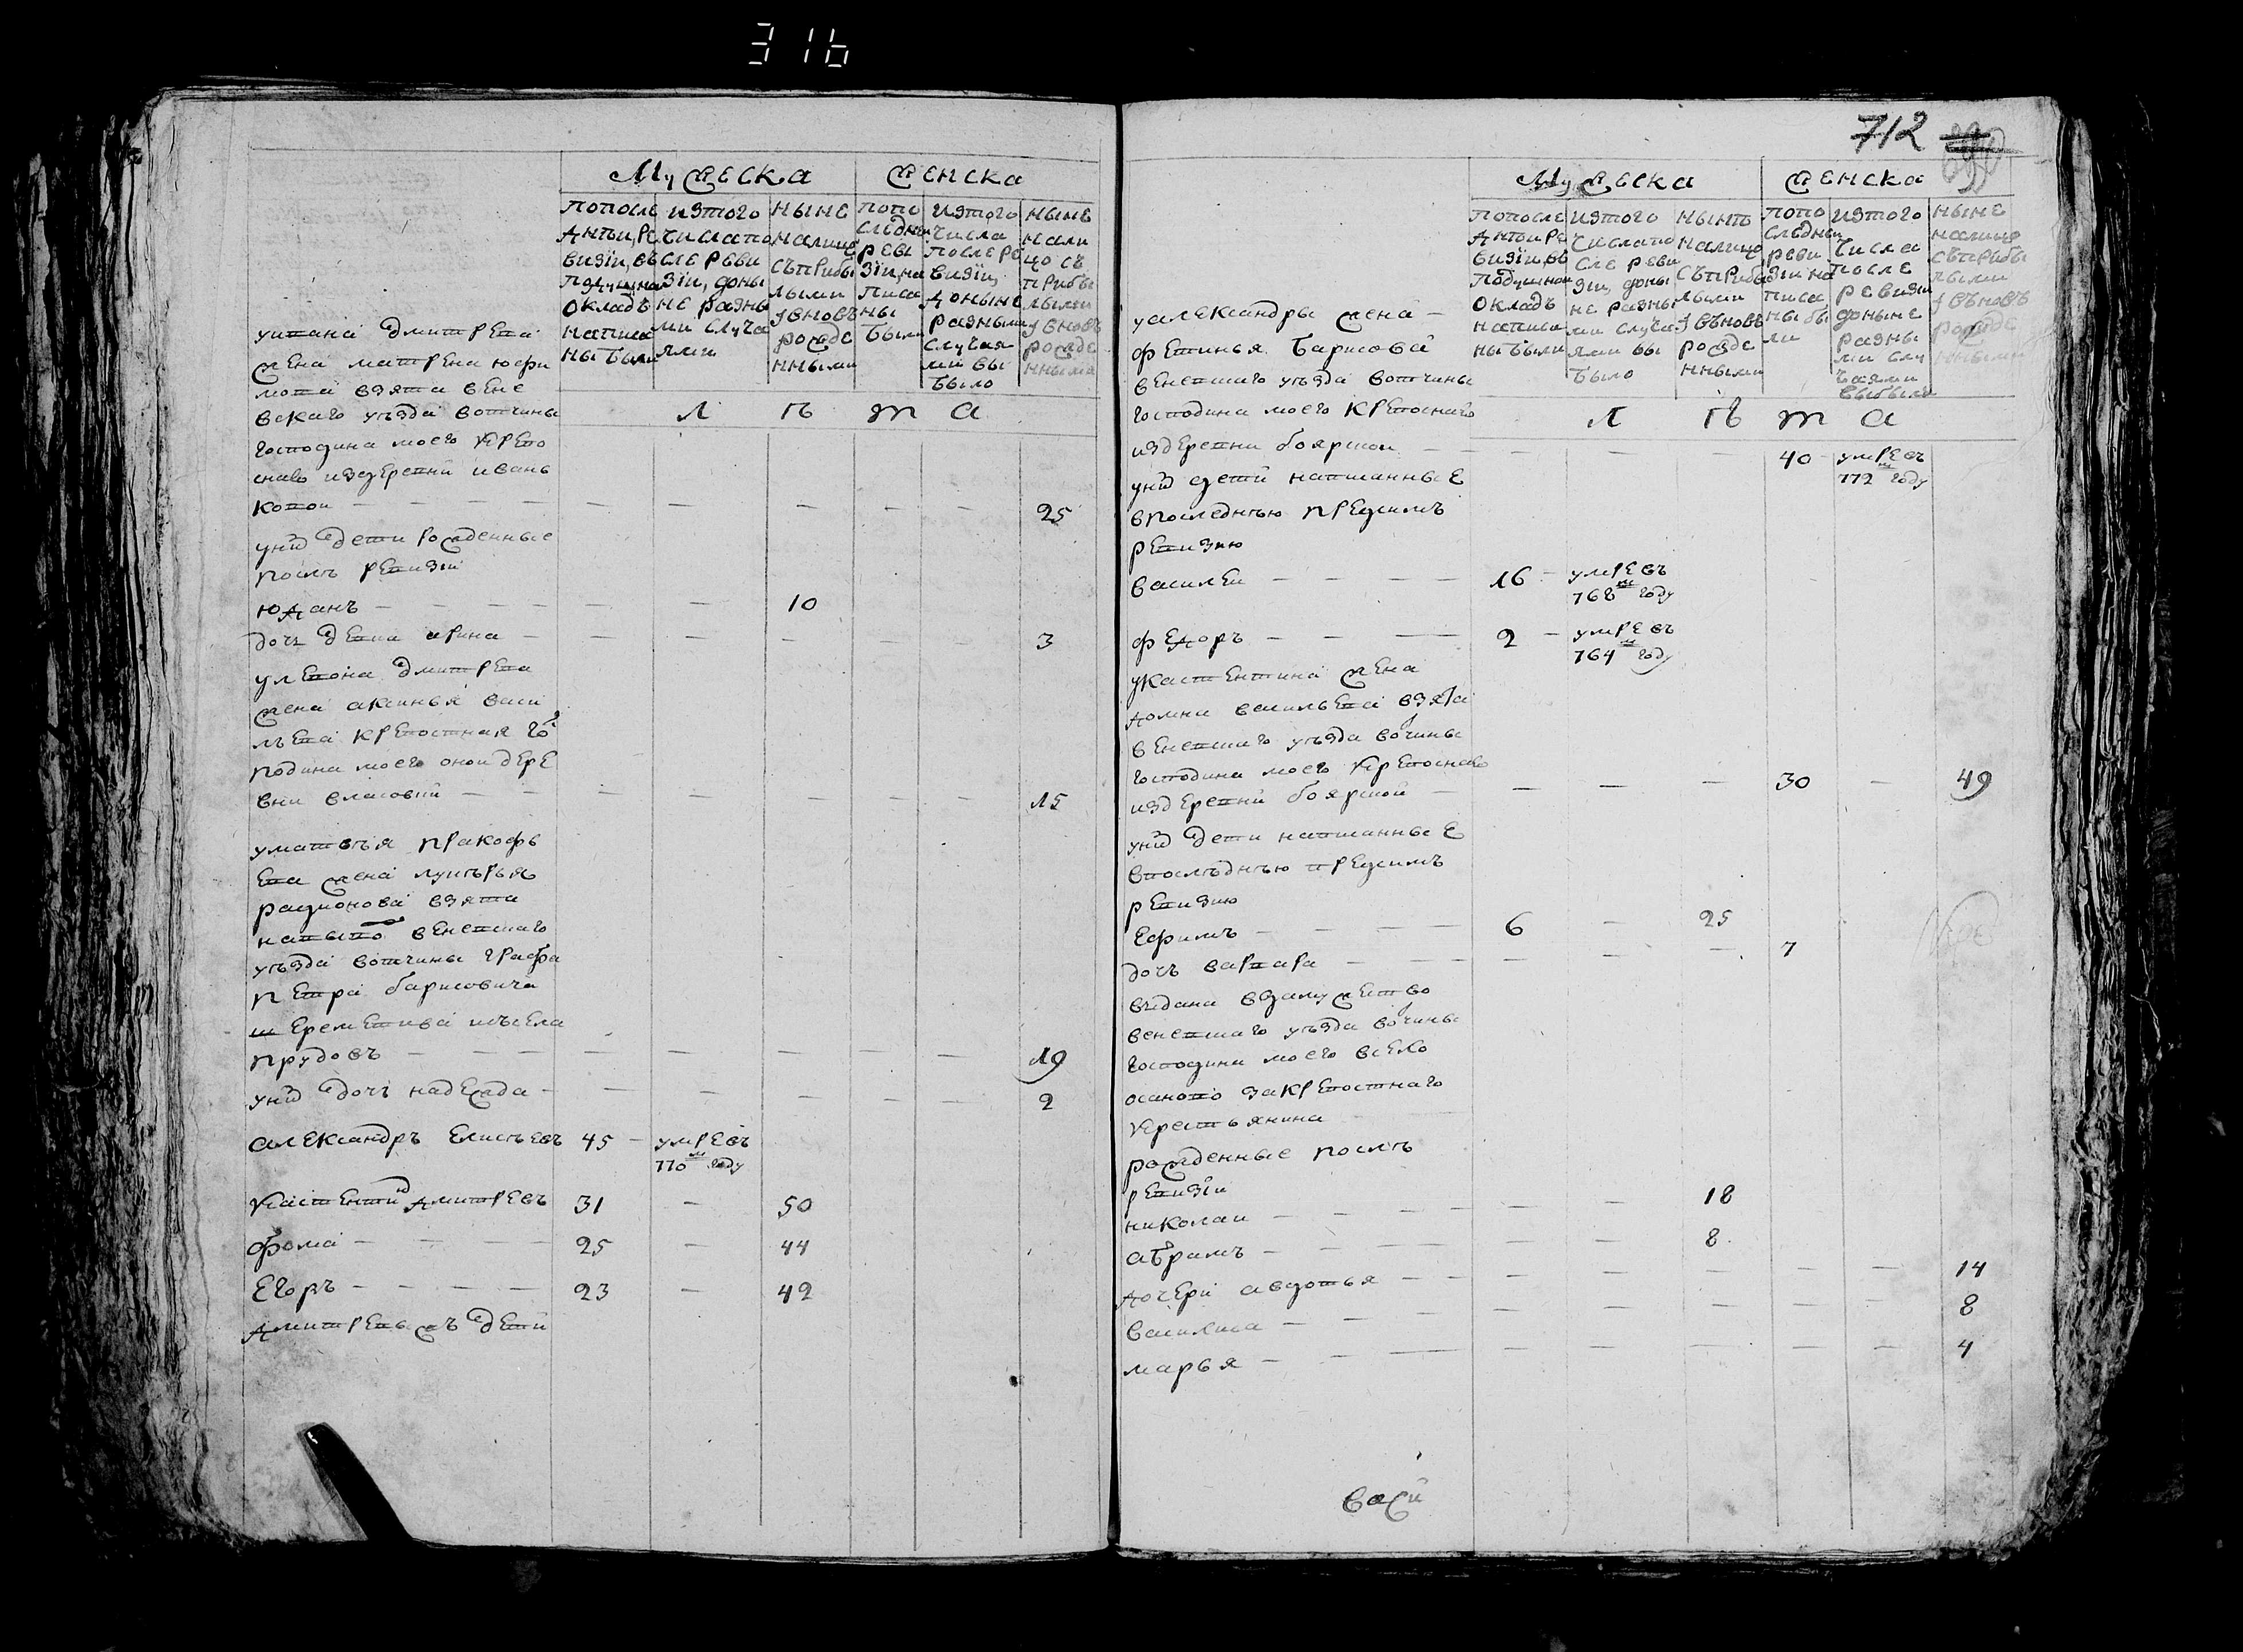 316
Мужеска женска
по последнъи ревизіи, въ подушнаи окладъ написаны были
из того числа после ревизіи, доныне разными случаями
ныне налицо съ прибылыми и вновь рожденными
по последнеи ревизіи написаны были
из того числа после ревизіи, доныне разными случаями выбыло
ныне налицо съ прибылыми и вновъ рожденными
лъта
у ивана дмитрева
жена матрена юфи
мова взята вене
вскаго уъзда вотчины
господина моего крепо
снаго из деревни ивань
ковои 25
у них дети рожденные
послъ ревизіи
юданъ 10
дочь девка арина 3
у левона дмитрева
жена аксинья васи
льева крепостная гос
подина моего онои дере
вни власовки 15
у матвъя пракофь
ева жена лукърья
радионова взята
на вывод веневскаго
уъзда вотчины графа
петра барисовича
шереметива исъсела
прудовъ 19
у них дочь надежда 2
александръ елисъевъ 45 умре въ
770 м году
кастентин дмитревъ 31 50
фома 25 44
егоръ 23 42
дмитревы жъ дети
712
Мужеска женска
по последнъи ревизіи въ подушнои окладъ написаны были
из того числа после ревизіи, доныне разными случаями выбыло
нынъ налицо съ прибылыми и въновь рожденными
по последнеи ревизіи написаны были
из того числа после ревизіи доныне разными случаями выбыли
ныне налицо съ прибылыми и въновъ рожденными
лъта
у александры жена
фетинья барисова
веневскаго уъзда вотчины
господина моего крепоснаго
из деревни боярскои 40 умре въ
772 м году
у них дети написанные
в последнъю пред симъ
ревизию
василеи 16 умре въ
768 м году
федоръ 2 умре въ
764 м году
у кастентина жена
домна васильева взята
веневскаго уъзда вочины
господина моего крепоснаго
из деревни боярскои 30 49
у них дети написанные
в послъднъю пред симъ
ревизию
ефимъ 6 25
дочь варвара 7
выдана в замужество
веневскаго уъзда вочины
господина моего в село
осаново за крепостнаго
крестьянина
рожденные послъ
ревизіи
николаи 18
абрамъ 8
дочери авдотья 14
василиса 8
марья 4
васи